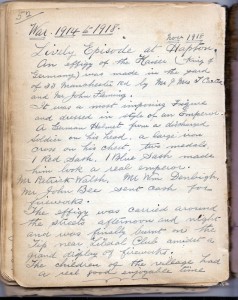 52
War. 1914 to 1918.
Nov. 1918
Lively Episode at Hapton.
An effigy of the Kaiser (King of
Germany) was made in the yard
of 30 Manchester Rd by Mr J. Mrs T
and Mr John Living.
It was a most imposing Figure
and dressed in style of an Emperor.
A German Helmet from a dishonered
soldier on his head, a large iron
cross on his chest, two medals
1 Red Sash, 1 Blue Sash made
him look a real emperor.
Mr Patrick Walsh, Mr Wm Denbigh,
Mr John Bee sent cash for
fireworks.
The effigy was carried around
the streets afternoon and night
and was finally burnt on the
Tip near Liberal Club amidst a
grand display of fireworks.
The children of the village had
a real good enjoyable time